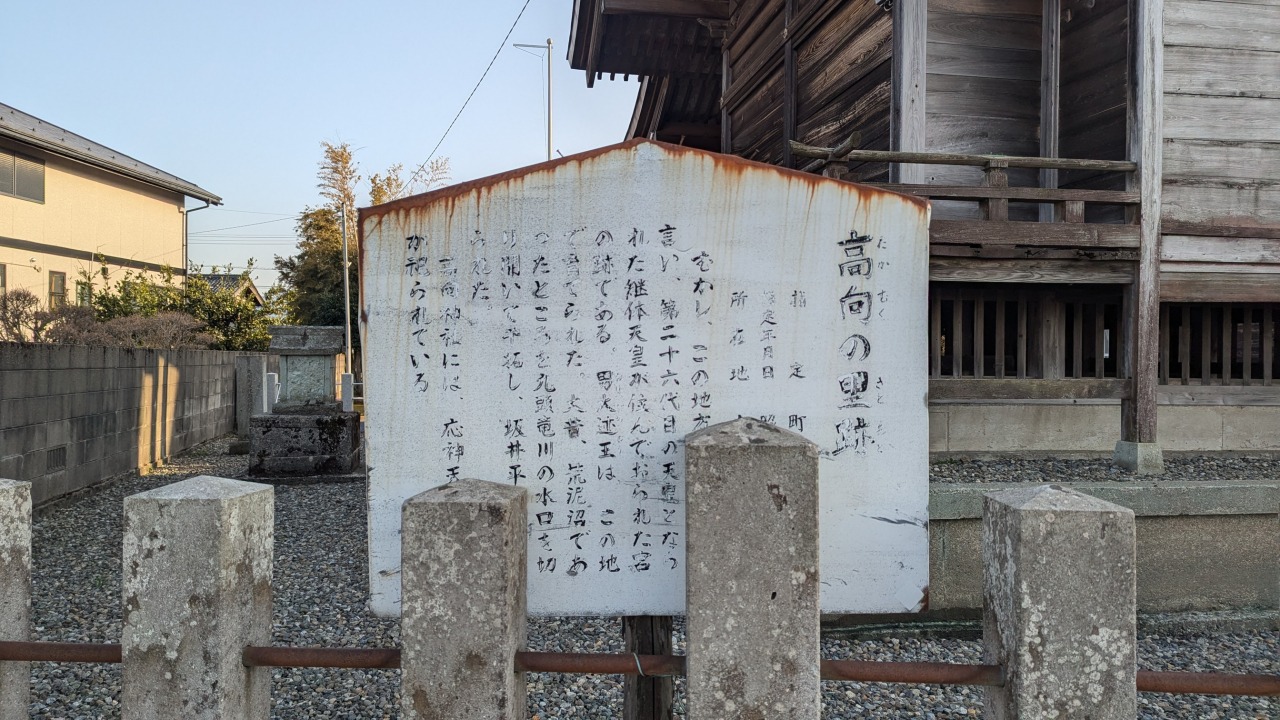 高向の里跡
たかむく さと
指定 町
指定年月日 昭
所在地
むかし、この地方
言い、第二十六代目の天皇となっ
れた継体天皇が住んでおられた宮
の跡である。男大迹王は この地
で育てられた。大昔、荒泥沼であ
ったところを九頭竜川の水口を切
り開いて干拓し、坂井平
られた。
高向神社には 応神天
が祀られている